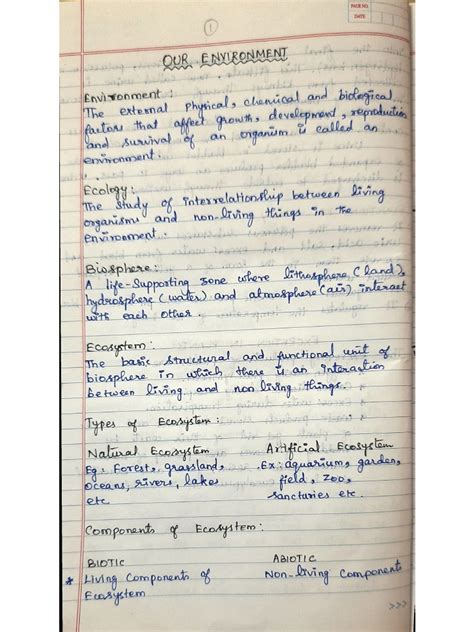 PAGE NO.
DATE
1
OUR ENVIRONMENT
Environment :
The external physical, chemical and biological
factors that affect growth, development, reproduction
and survival of an organism is called an
environment.
Ecology:
The study of interrelationship between living
organisms and non-living things in the
Environment.
Biosphere:
A life-Supporting zone where lithosphere (land),
hydrosphere (water) and atmosphere (air) interact
with each other.
Ecosystem:
The basic structural and functional unit of
biosphere in which there is an interaction
between living and non living things.
Types of Ecosystem:
Natural Ecosystem Artificial Ecosystem
Eg: Forest, grassland, Ex: aquarium, garden,
Oceans, rivers, lakes field, Zoo,
etc sanctaries etc.
Components of Ecosystem:
BIOTIC ABIOTIC
* Living Components of Non-living Components
Ecosystem
>>>